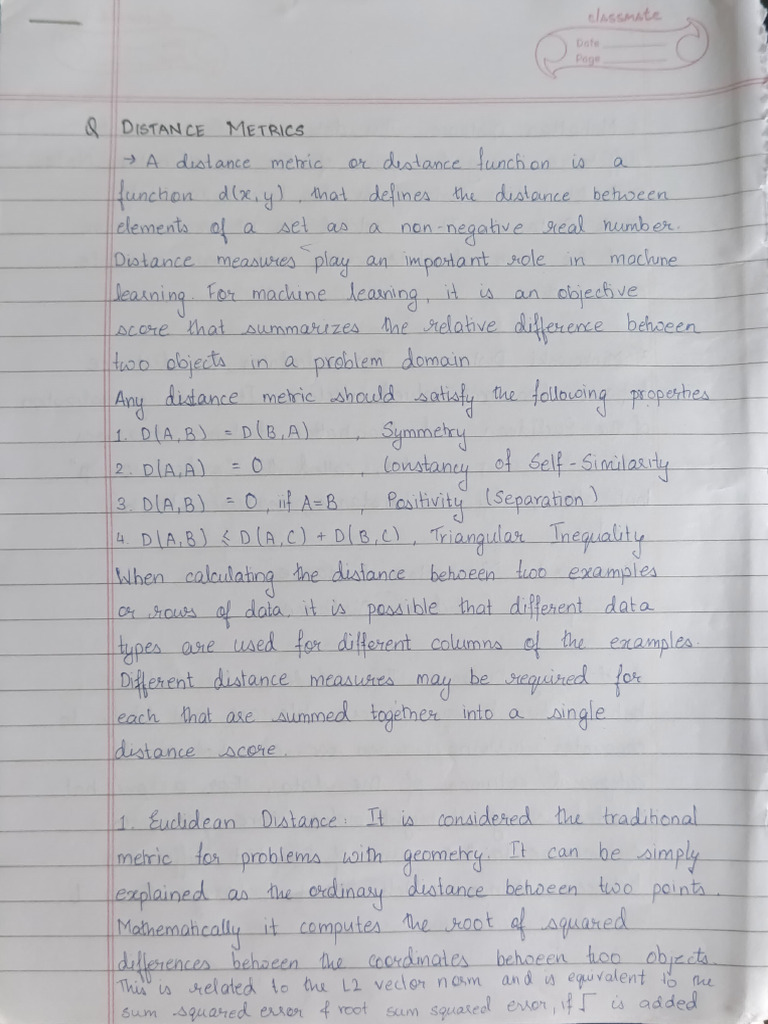 classmate
Date
Page
Q DISTANCE METRICS
→ A distance metric or distance function is a
function d(x,y), that defines the distance between
elements of a set as a non-negative real number.
Distance measures play an important role in machine
learning. For machine learning, it is an objective
score that summarizes the relative difference between
two objects in a problem domain
Any distance metric should satisfy the following properties
1. D(A,B) = D(B,A) , Symmetry
2. D(A,A) = 0 , Constancy of Self-Similarity
3. D(A,B) = 0, iif A=B , Positivity (Separation)
4. D(A,B) ≤ D(A,C) + D(B,C), Triangular Inequality
When calculating the distance between two examples
or rows of data, it is possible that different data
types are used for different columns of the examples.
Different distance measures may be required for
each that are summed together into a single
distance score.
1. Euclidean Distance: It is considered the traditional
metric for problems with geometry. It can be simply
explained as the ordinary distance between two points.
Mathematically it computes the root of squared
differences between the coordinates between two objects.
This is related to the L2 vector norm and is equivalent to the
sum squared error & root sum squared error, if √ is added